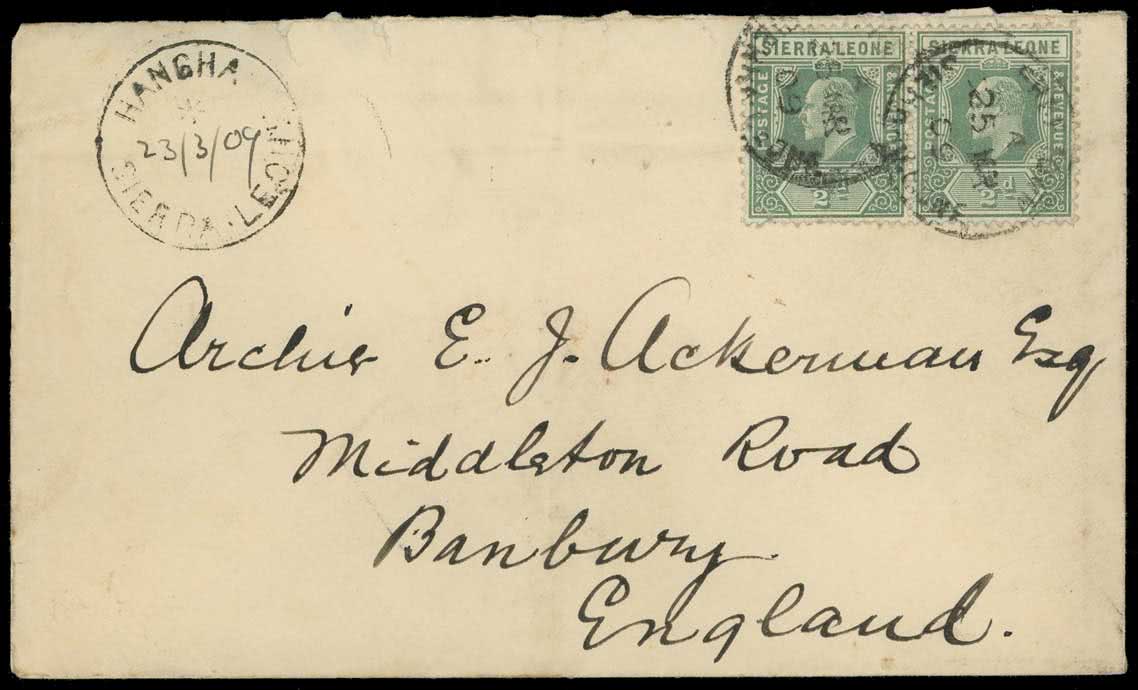 HANGHA
23/3/09
SIERRA·LEONE
SIERRA LEONE SIERRA LEONE
POSTAGE & REVENUE POSTAGE & REVENUE
MAR 25
½d ½d
Archie E. J. Ackerman Esq
Middleton Road
Banbury
England.